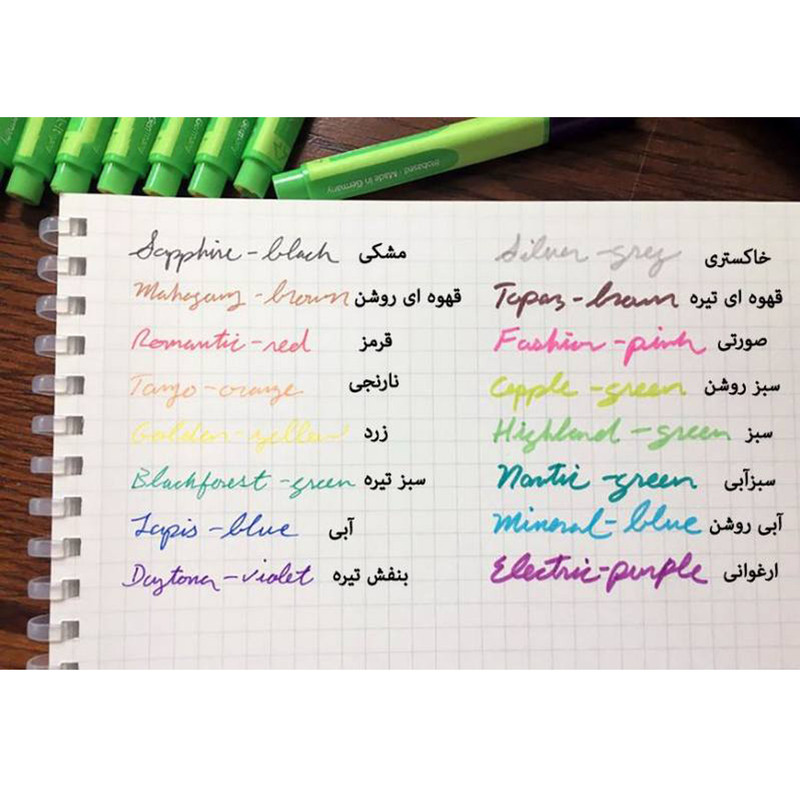 Biobased · Made in Germany
Sapphire-black مشکی
Mahagany-brown قهوه ای روشن
Romantic-red قرمز
Tango-orange نارنجی
Golden-yellow زرد
Blackforest-green سبز تیره
Lapis-blue آبی
Daytona-violet بنفش تیره
Silver-grey خاکستری
Topaz-brown قهوه ای تیره
Fashion-pink صورتی
Apple-green سبز روشن
Highland-green سبز
Nautic-green سبزآبی
Mineral-blue آبی روشن
Electric-purple ارغوانی